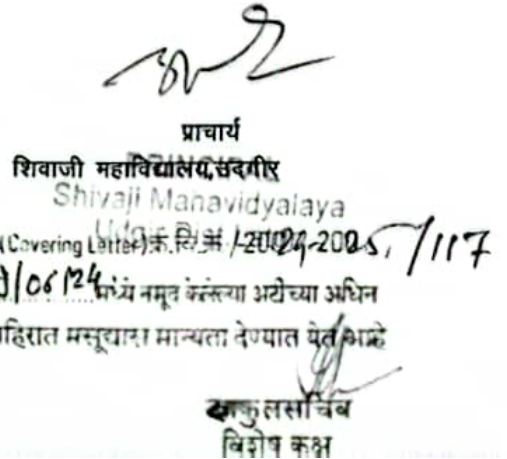 प्राचार्य
शिवाजी महाविद्यालय, उदगीर
PRINCIPAL
Shivaji Mahavidyalaya
Udgir
(Covering Letter) क्र. /2024-2025 /117
/06/24 मध्ये नमूद केलेल्या अटीच्या अधिन
हिरात मसूद्यास मान्यता देण्यात येत आहे
कुलसचिव
विशेष कक्ष